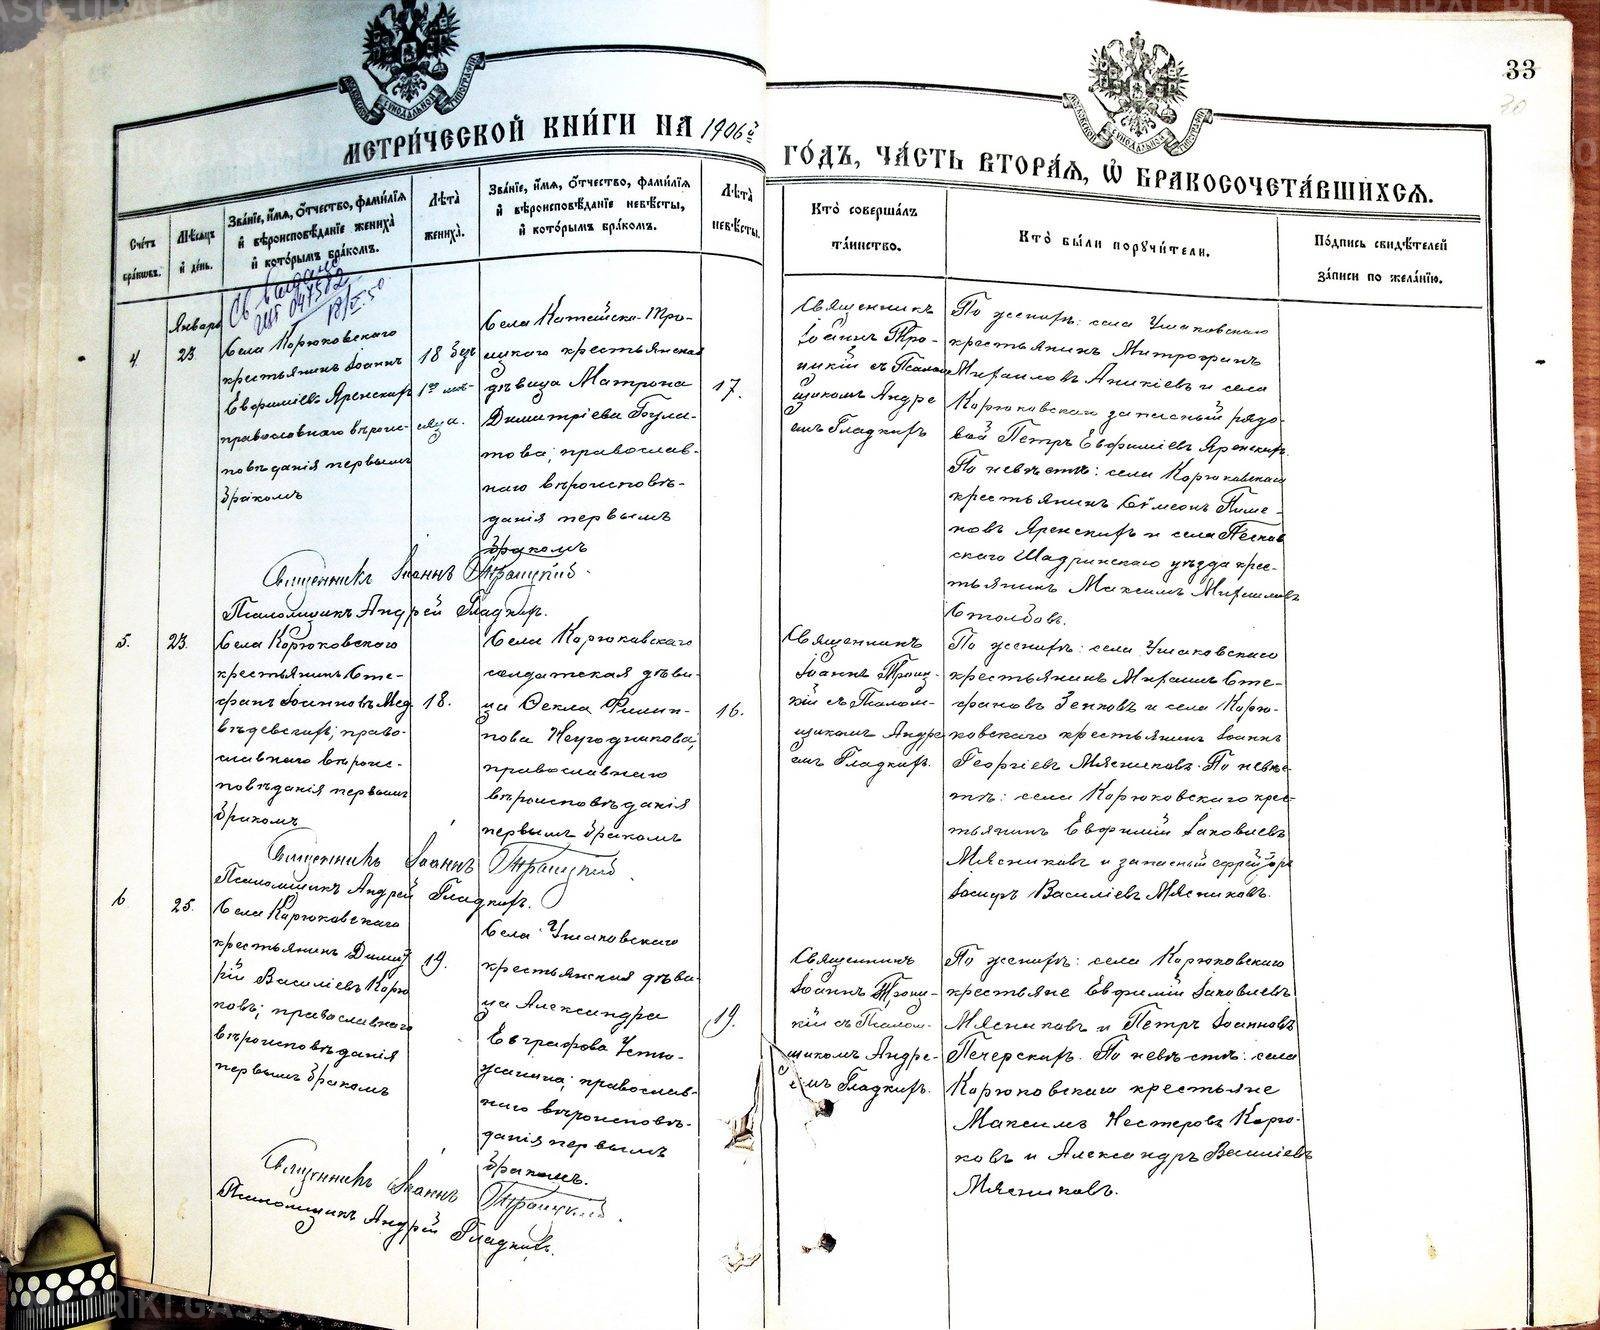 33
30
МЕТРИ́ЧЕСКОЙ КНИ́ГИ НА 1906й
ГО́ДЪ, ЧА́СТЬ ВТОРА́Я, Ѡ БРАКОСОЧЕТА́ВШИХСЯ.
Сче́тъ бра́ковъ.
Мѣ́сяцъ и де́нь.
Зва́нїе, и́мя, о́тчество, фами́лїя
и вѣроисповѣ́данїе жениха̀
и кото́рымъ бра́комъ.
Лѣ́та
жениха̀.
Зва́нїе, и́мя, о́тчество, фами́лїя
и вѣроисповѣ́данїе невѣ́сты,
и кото́рымъ бра́комъ.
Лѣ́та
невѣ́сты.
Кто̀ соверша́лъ
та́инство.
Кто̀ бы́ли поручи́тели.
По́дпись свидѣ́телей
за́писи по жела́нїю.
Св выдано
18/V 50
4
Январь
23.
Села Корюковскаго
крестьянинъ Іоаннъ
Евфиміевъ Яренскихъ
православнаго вѣроис-
повѣданія первымъ
бракомъ
18 безъ
1го мѣ-
сяца.
Села Катайска-Тро-
ицкаго крестьянская
дѣвица Матрона
Димитріева Була-
това; православ-
наго вѣроисповѣ-
данія первымъ
бракомъ
17.
Священникъ
Іоаннъ Тро-
ицкій съ Псалом
щикомъ Андре
емъ Гладкихъ
По женихѣ: села Ушаковскаго
крестьянинъ Митрофанъ
Михаиловъ Аникіевъ и села
Корюковскаго запасный рядо-
вой Петръ Евфиміевъ Яренскихъ.
По невѣстѣ: села Корюковскаго
крестьянинъ Сѵмеонъ Пиме-
новъ Яренскихъ и села Песков
скаго Шадринскаго уѣзда крес-
тьянинъ Максимъ Михаиловъ
Столбовъ.
Священникъ Іоаннъ Троицкій.
Псаломщикъ Андрей Гладкихъ.
5.
23.
Села Корюковскаго
крестьянинъ Сте-
фанъ Іоанновъ Мед
вѣдевскихъ; право-
славнаго вѣроис-
повѣданія первымъ
бракомъ
18.
Села Корюковскаго
солдатская дѣви-
ца Ѳекла Филип-
пова Неугодникова;
православнаго
вѣроисповѣданія
первымъ бракомъ
16.
Священникъ
Іоаннъ Троиц-
кій съ Псалом-
щикомъ Андре
емъ Гладкихъ.
По женихѣ: села Ушаковскаго
крестьянинъ Михаилъ Сте-
фановъ Зенковъ и села Корю-
ковскаго крестьянинъ Іоаннъ
Георгіевъ Мясниковъ. По невѣс-
тѣ: села Корюковскаго крес-
тьянинъ Евфимій Іаковлевъ
Мясниковъ и запасный ефрейторъ
Іосифъ Василіевъ Мясниковъ.
Священникъ Іоаннъ Троицкій.
Псаломщикъ Андрей Гладкихъ.
6
25.
Села Корюковскаго
крестьянинъ Димит
рій Василіевъ Корю
ковъ; православнаго
вѣроисповѣданія
первымъ бракомъ
19.
Села Ушаковскаго
крестьянская дѣви-
ца Александра
Евграфова Устю-
жанина; православ-
наго вѣроисповѣ-
данія первымъ
бракомъ.
19.
Священникъ
Іоаннъ Троиц-
кій съ Псалом-
щикомъ Андре-
емъ Гладкихъ.
По женихѣ: села Корюковскаго
крестьяне Евфимій Іаковлевъ
Мясниковъ и Петръ Іоанновъ
Печерскихъ. По невѣстѣ: села
Корюковскаго крестьяне
Максимъ Нестеровъ Корю-
ковъ и Александръ Василіевъ
Мясниковъ.
Священникъ Іоаннъ Троицкій.
Псаломщикъ Андрей Гладкихъ.